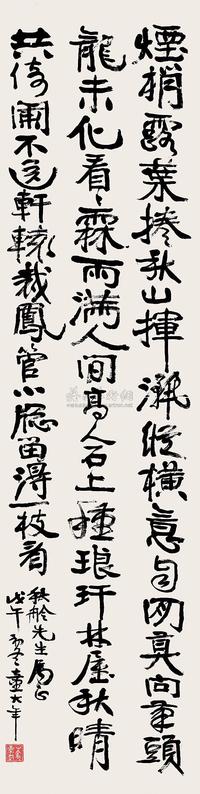 煙梢露葉捲秋山揮灑縱橫意自閑莫向頭
龍未化看〻霖雨滿人間高人石上種琅玕林屋秋晴
共倚闌不遣軒轅裁鳳管小牕留得一枝看
舲先生屬正
戊午初冬童大年